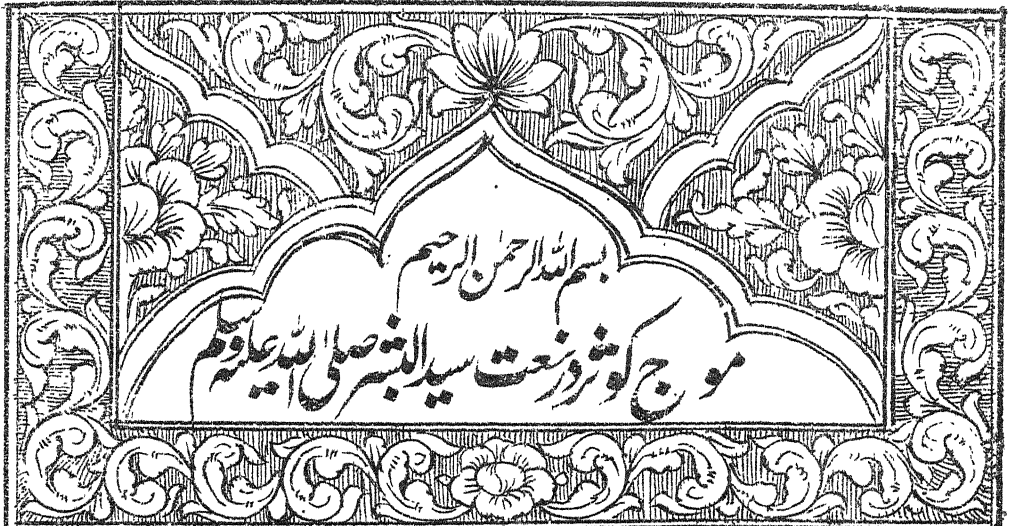 بسم الله الرحمٰن الرحیم
موج کوثر در نعت سید البشر صلی اللہ علیہ وسلم